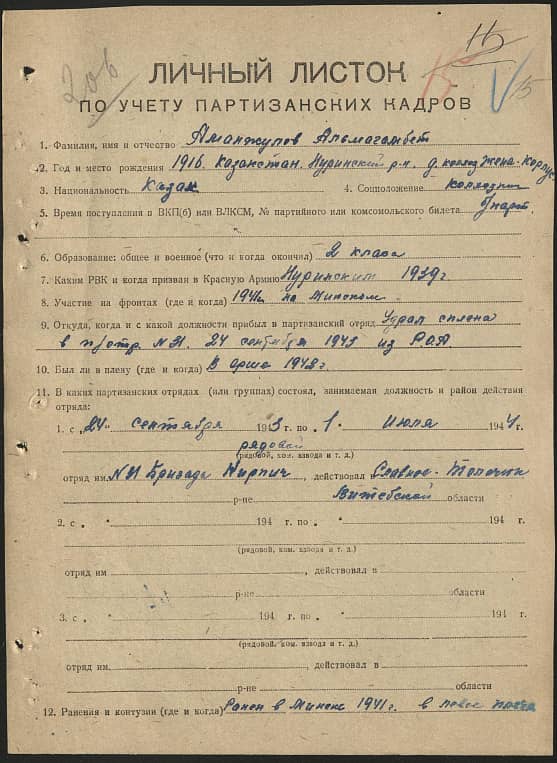 206
15
V 15
ЛИЧНЫЙ ЛИСТОК
ПО УЧЕТУ ПАРТИЗАНСКИХ КАДРОВ
1. Фамилия, имя и отчество Аманжулов Альмагамбет
2. Год и место рождения 1916. Казахстан. Нуринский р-н. д. колхоз Жена-Корпус
3. Национальность Казах 4. Соцположение колхозник
5. Время поступления в ВКП(б) или ВЛКСМ, № партийного или комсомольского билета
6. Образование: общее и военное (что и когда окончил) 2 класса
7. Каким РВК и когда призван в Красную Армию Нуринским 1939г
8. Участие на фронтах (где и когда) 1941г на Минском
9. Откуда, когда и с какой должности прибыл в партизанский отряд Удрал с плена
в п/отр. N 31. 24 сентября 1943 из РОА.
10. Был ли в плену (где и когда) В Орше 1942г.
11. В каких партизанских отрядах (или группах) состоял, занимаемая должность и район действия
отряда:
1. с „24" сентября 1943 г. по „1" Июля 1944 г.
рядовой
(рядовой, ком. взвода и т. д.)
отряд им. N 31 Бригада Кирпич, действовал в Славное-Толочин
р-не Витебской области
2. с „ " 194 г. по „ " 194 г.
(рядовой, ком. взвода и т. д.)
отряд им , действовал в
р-не области
3. с „ " 194 г. по „ " 194 г.
(рядовой, ком. взвода и т. д.)
отряд им. , действовал в
р-не области
12. Ранения и контузии (где и когда) Ранен в Минске 1941г. в левое